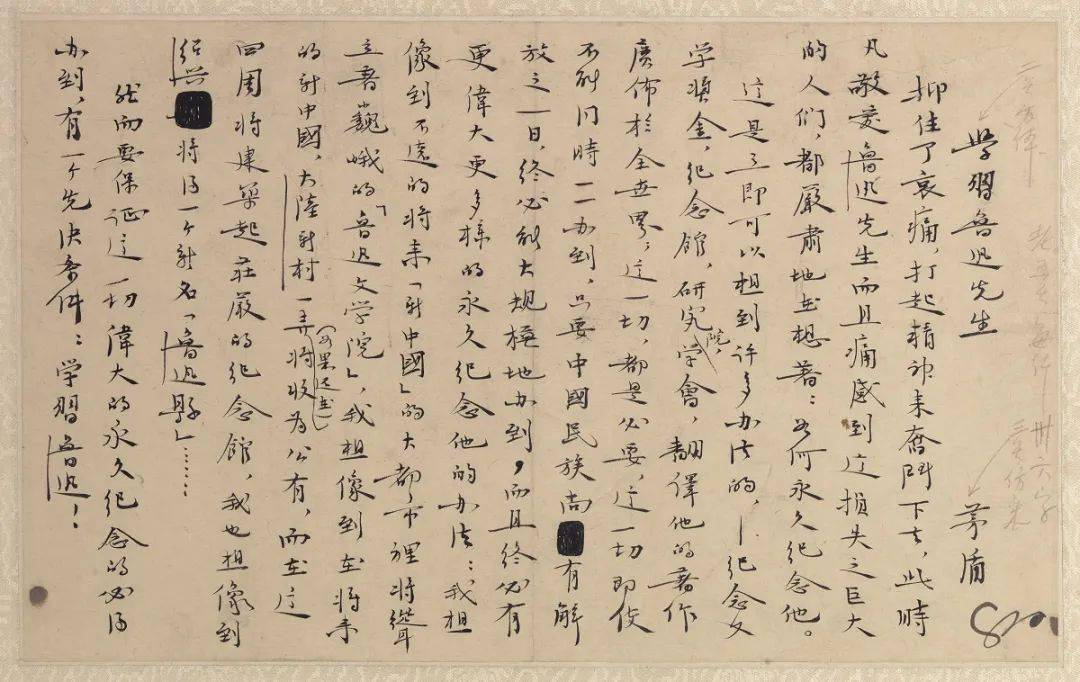 学習魯迅先生
茅盾
抑住了哀痛，打起精神来奮鬥下去，此時
凡敬愛魯迅先生而且痛感到这損失之巨大
的人们，都嚴肅地在想着：如何永久纪念他。
这是立即可以想到许多办法的，—纪念文
学奖金，纪念館，研究院，学會，翻譯他的著作
廣佈於全世界；这一切，都是必要，这一切即使
不能同時一一办到，只要中國民族尚有解
放之一日，终必能大规模地办到，而且终必有
更偉大更多樣的永久纪念他的办法：我想
像到不遠的将来「新中國」的大都市裡将聳
立着巍峨的「魯迅文学院」，我想像到在将来
的新中國，大陸新村（如果还在）一弄将收为公有，而在这
四周将建築起莊嚴的纪念館，我也想像到
绍兴将得一个新名「魯迅縣」……
然而要保证这一切偉大的永久纪念的必得
办到，有一个先决条件：学習魯迅！